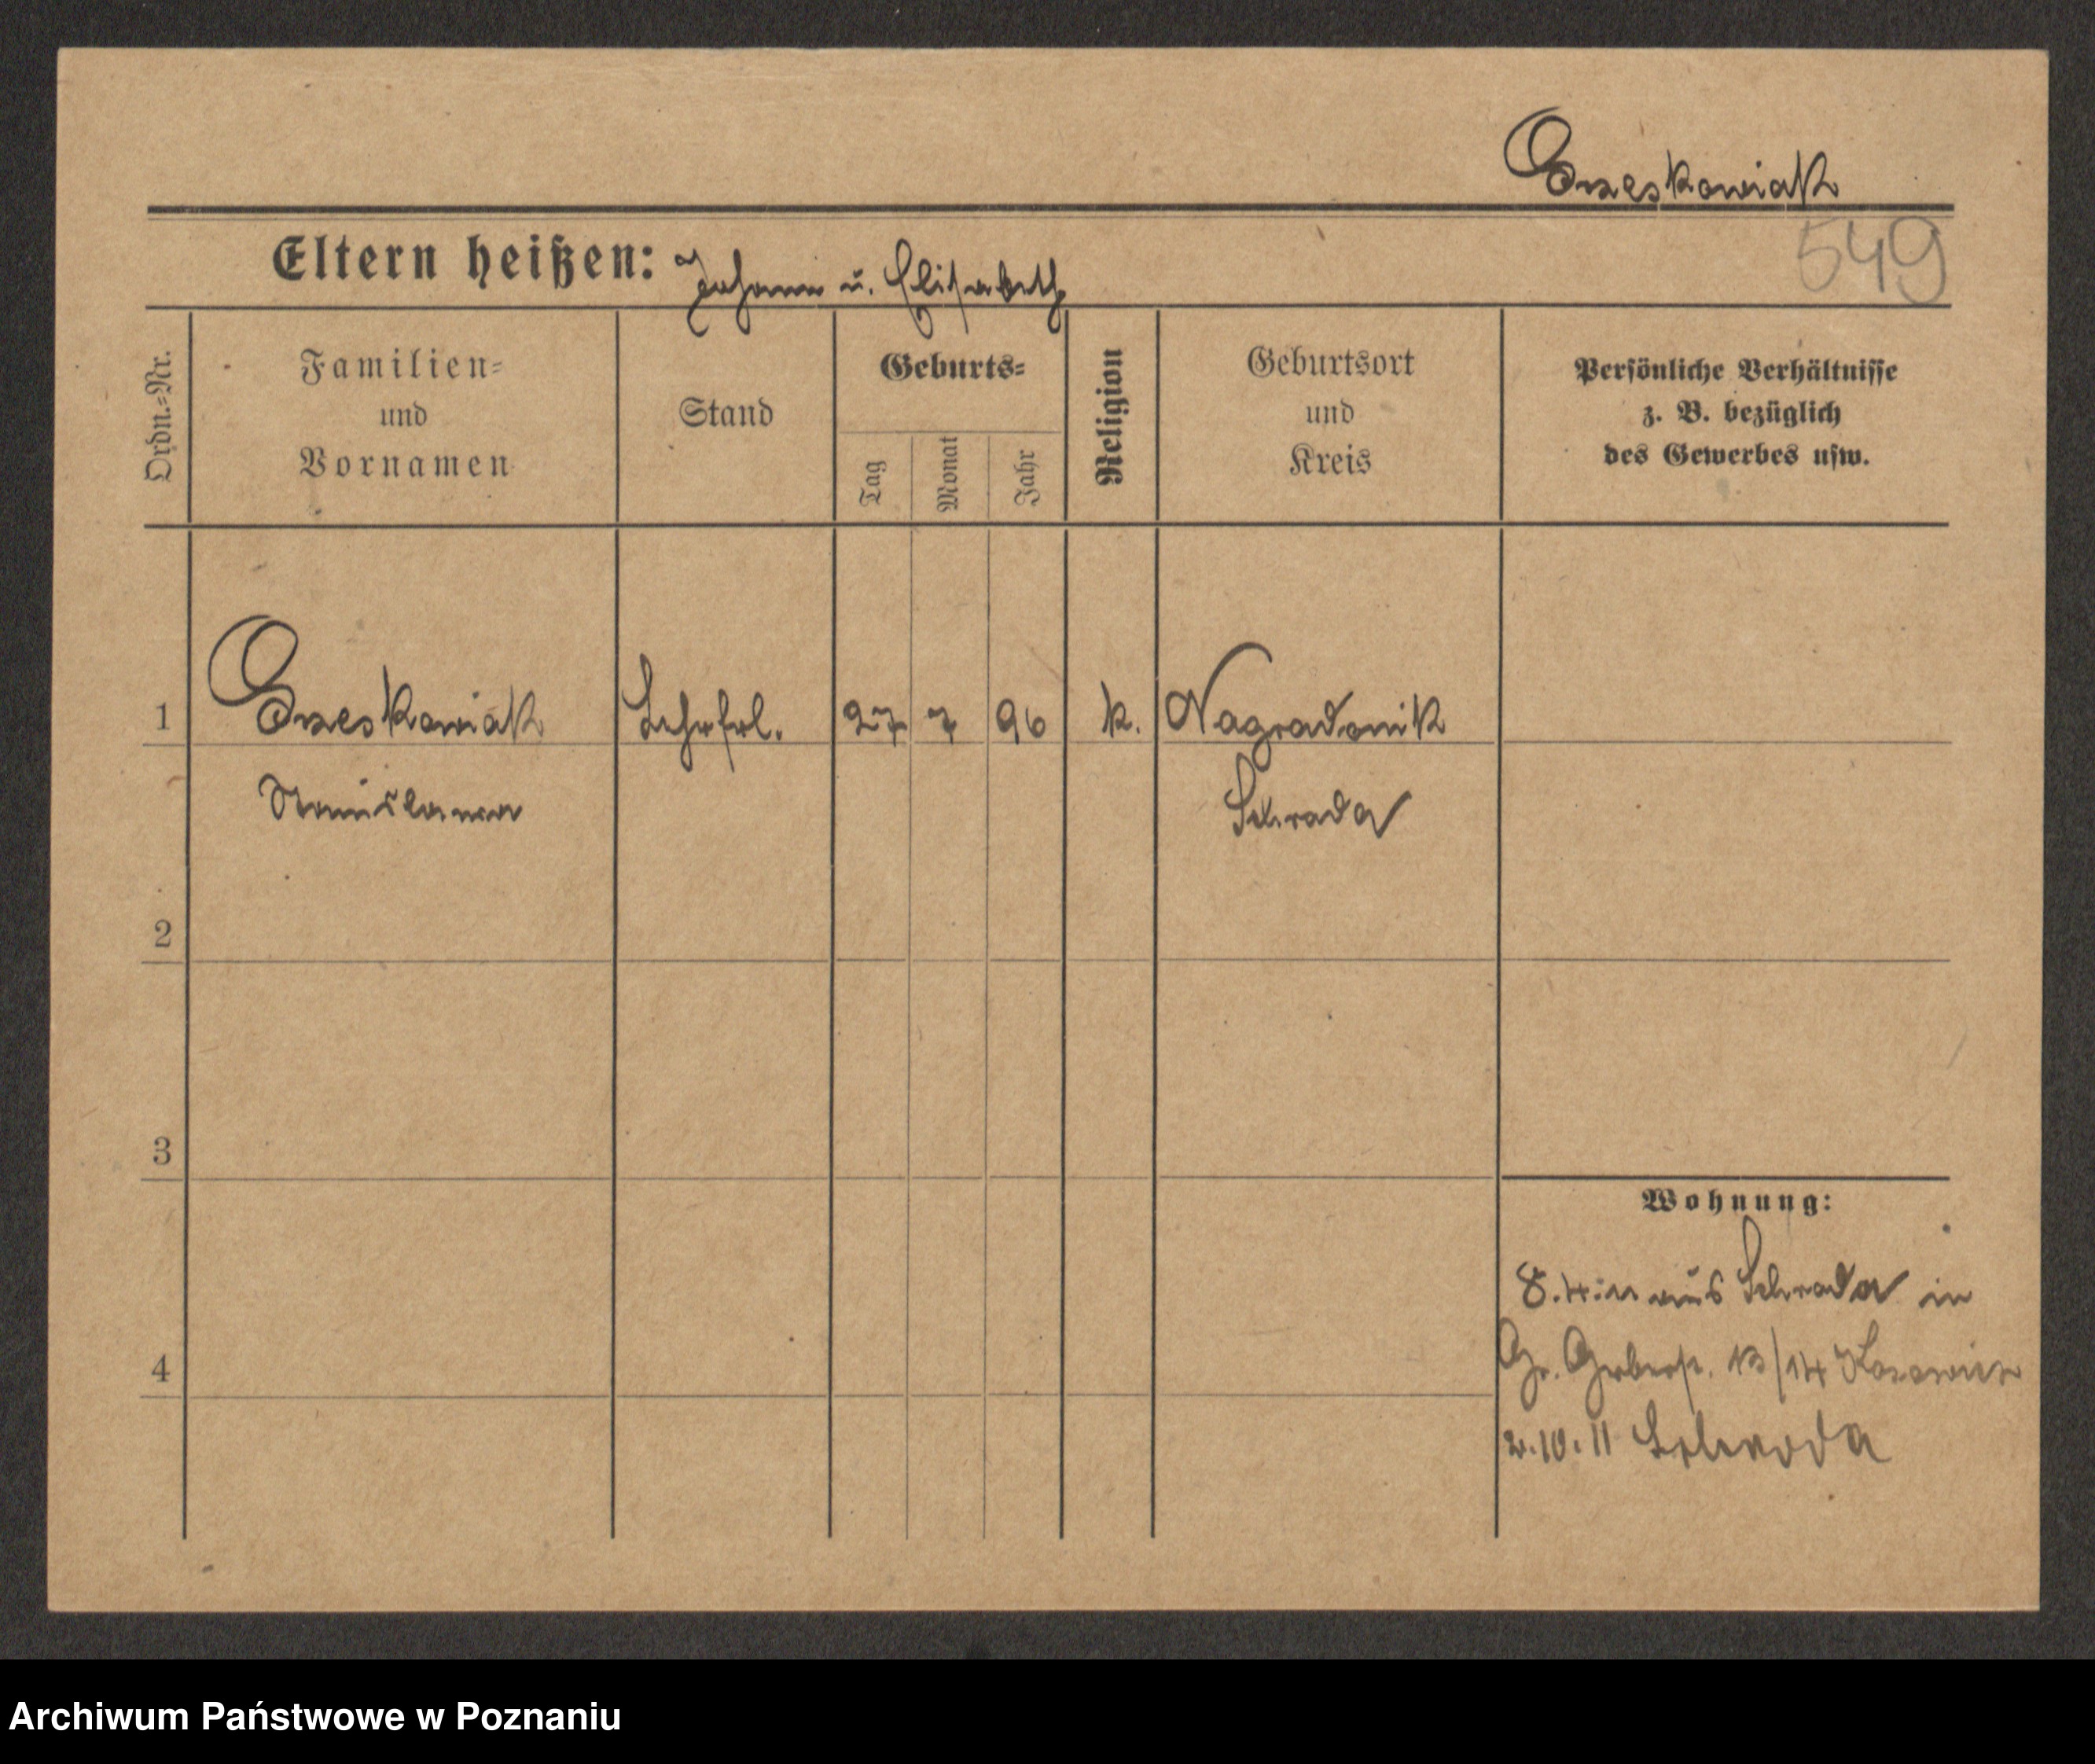 Orzeskowiak
549
Eltern heißen: Johann u. Elisabeth
Ordn.=Nr.
Familien=
und
Vornamen
Stand
Geburts=
Tag
Monat
Jahr
Religion
Geburtsort
und
Kreis
Persönliche Verhältnisse
z. B. bezüglich
des Gewerbes usw.
1 Orzeskowiak Lehrfrl. 27 7 96 k. Nagradowik
Stanislawa Schroda
2
3
Wohnung:
8.4.11 aus Schroda in
4
Gr. Gerberst. 13/14
2.10.11 Schroda
Archiwum Państwowe w Poznaniu